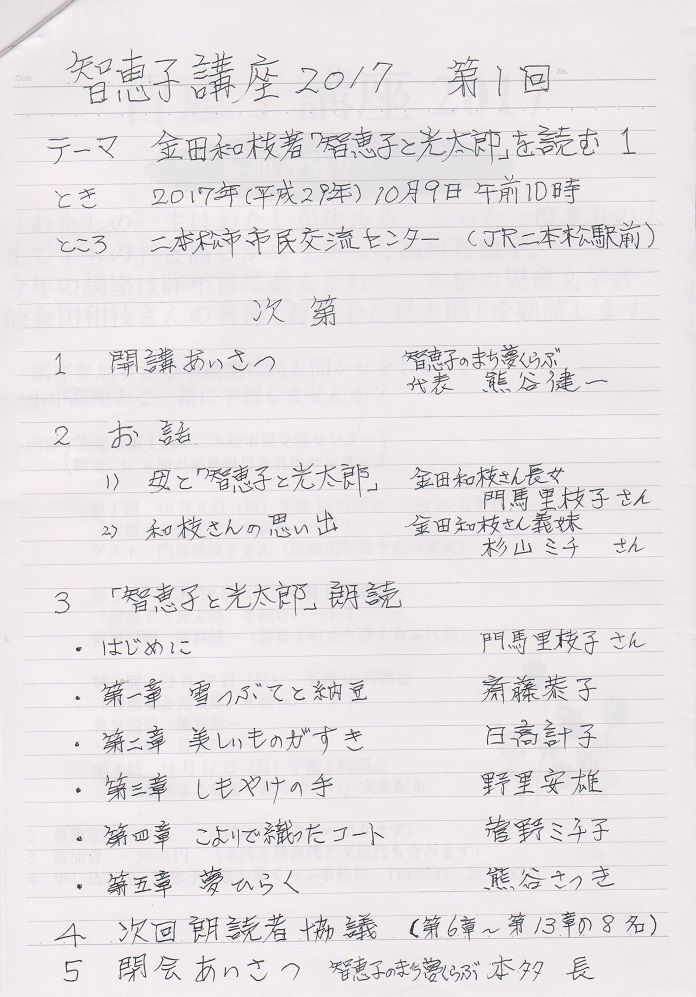 智恵子講座2017 第1回
テーマ 金田和枝著「智恵子と光太郎」を読む 1
とき 2017年(平成29年) 10月9日 午前10時
ところ 二本松市市民交流センター (JR二本松駅前)
次第
1 開講あいさつ 智恵子のまち夢くらぶ
代表 熊谷健一
2 お話
1) 母と「智恵子と光太郎」 金田和枝さん長女
門馬里枝子さん
2) 和枝さんの思い出 金田和枝さん義妹
杉山ミチ さん
3 「智恵子と光太郎」朗読
・はじめに 門馬里枝子さん
・第一章 雪つぶてと納豆 斎藤恭子
・第二章 美しいものがすき 日高計子
・第三章 しもやけの手 野里安雄
・第四章 こよりで織ったコート 菅野ミチ子
・第五章 夢ひらく 熊谷さつき
4 次回朗読者協議 (第6章~第13章の8名)
5 閉会あいさつ 智恵子のまち夢くらぶ 本多 長